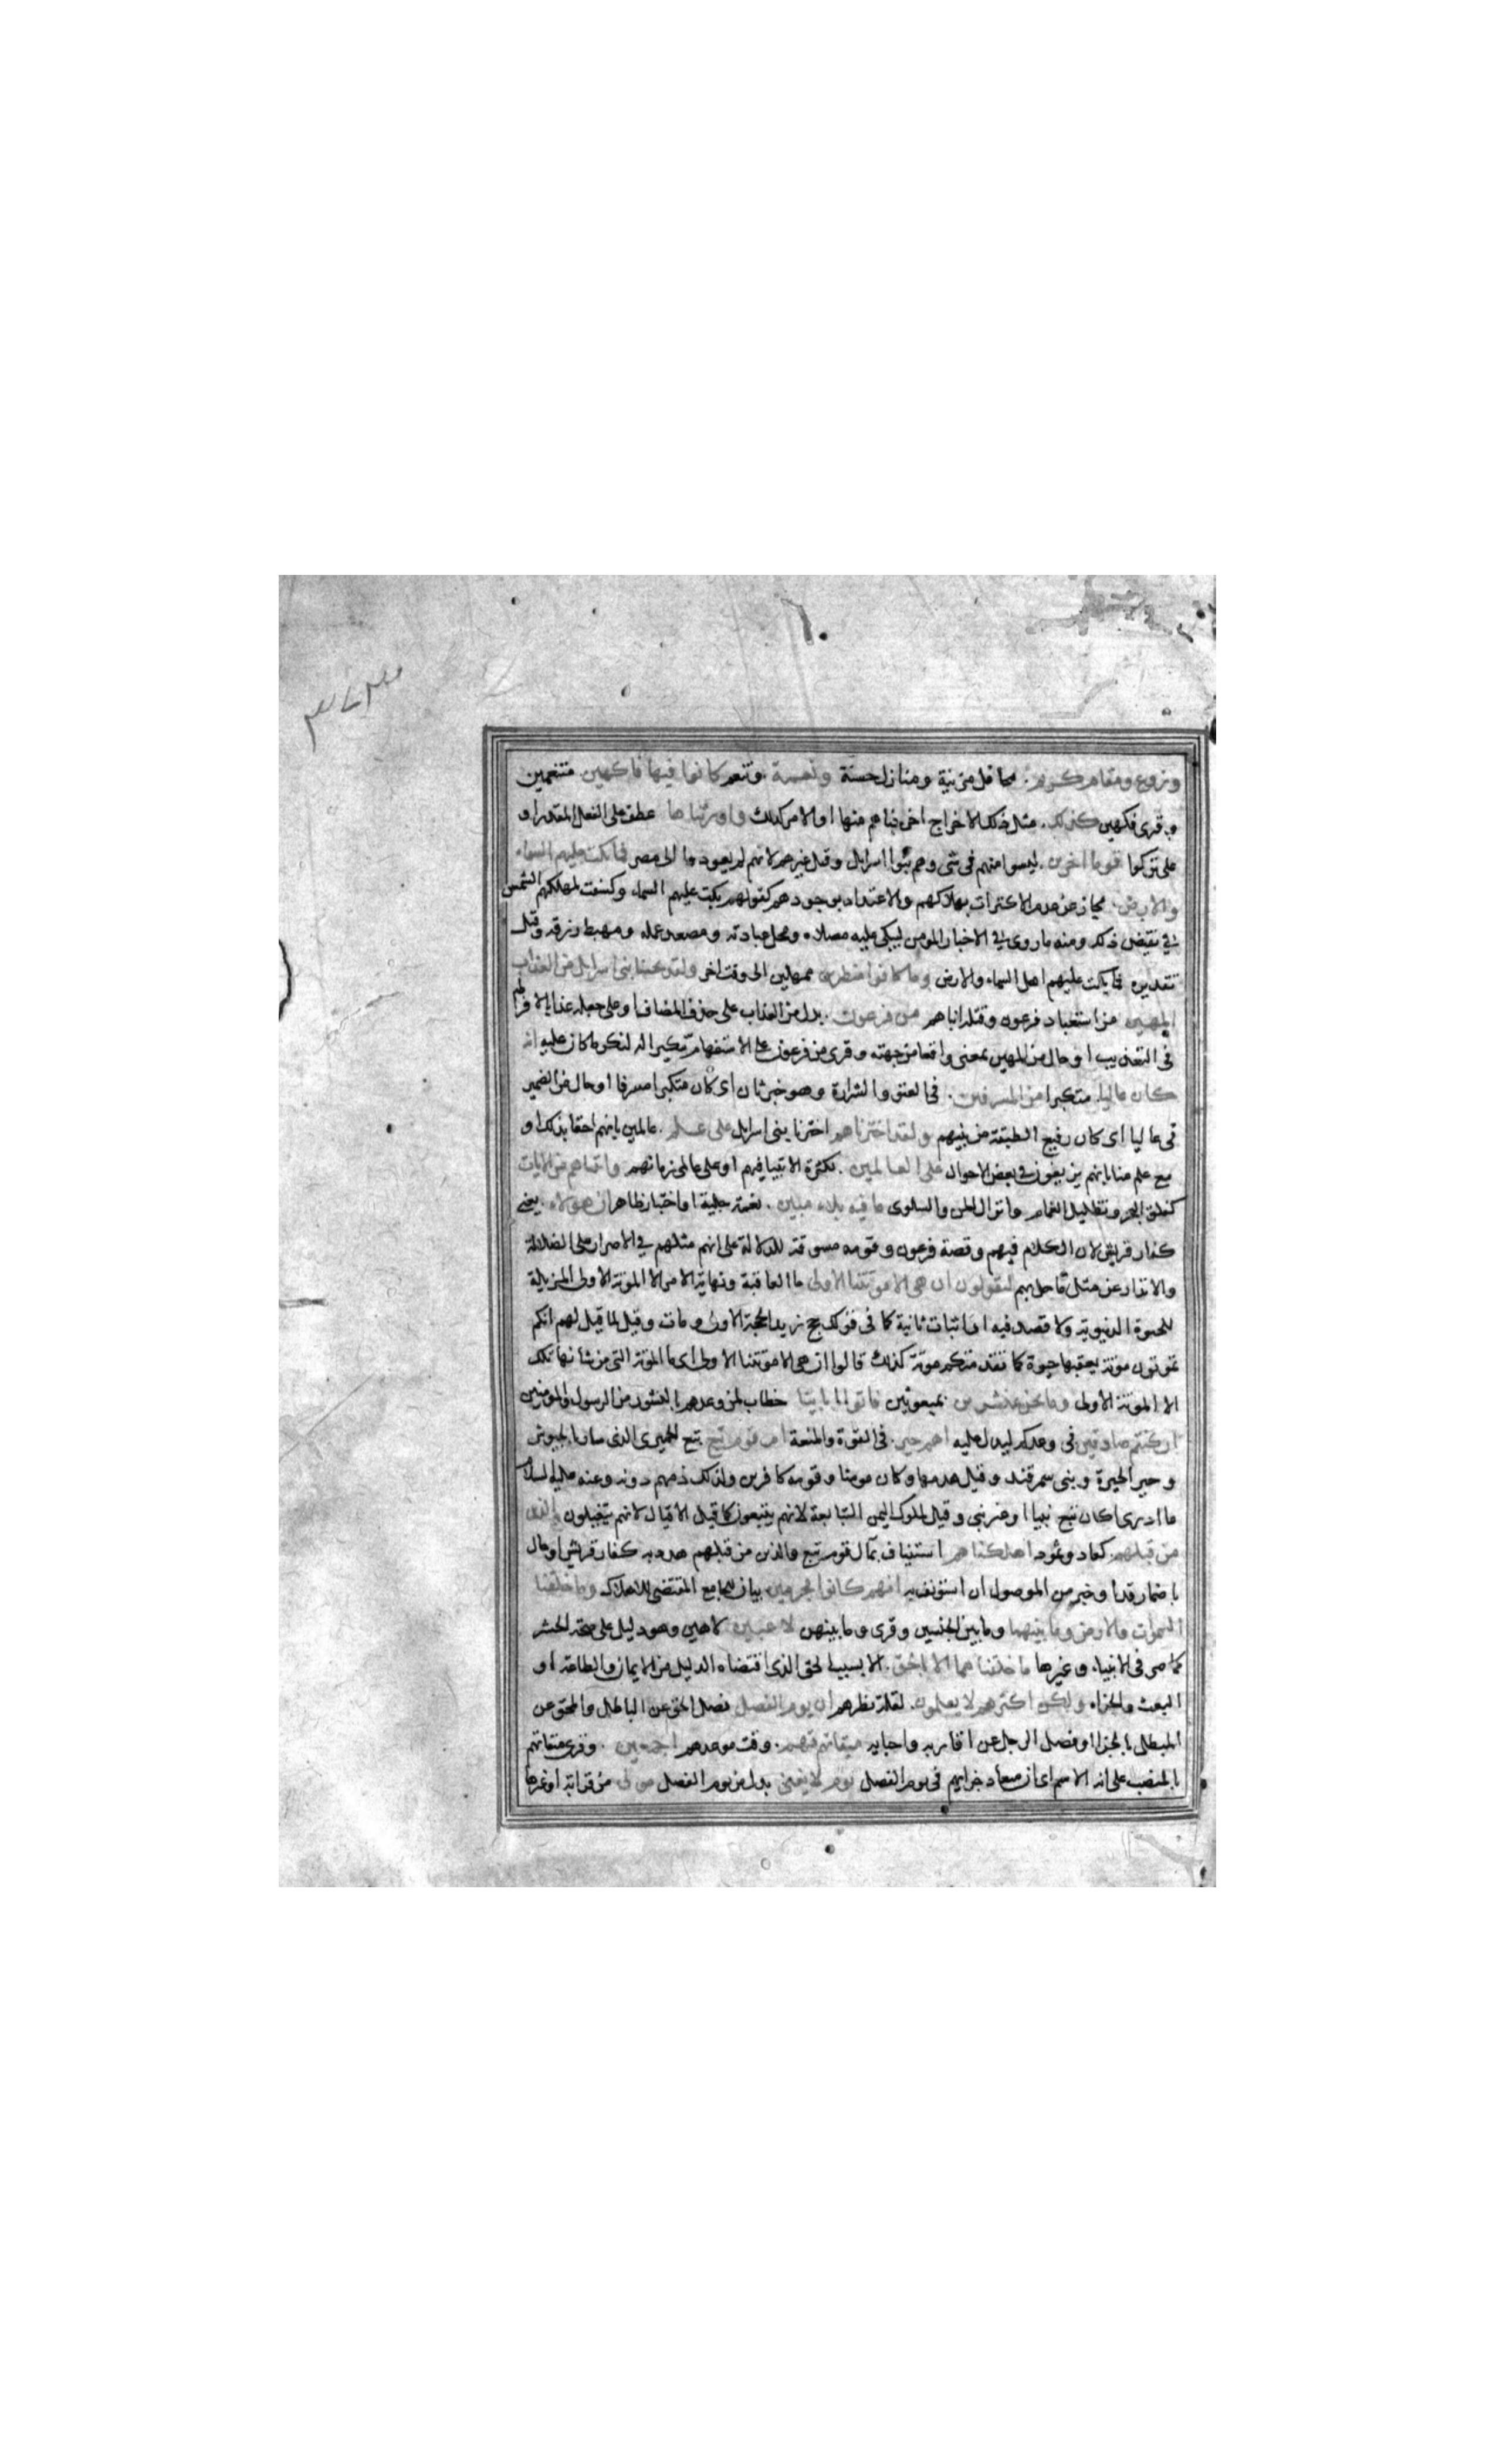 وزروع ومقام كريم. محافل مزينة ومنازل حسنة ونعمة. وتنعم كانوا فيها فاكهين. متنعمين
وقرئ فكهين كذلك. مثل ذلك الاخراج اخرجناهم منها او الامر كذلك واورثناها عطف على الفعل المقدر او
على تركوا قوما اخرين. ليسوا منهم فى شئ وهم بنوا اسرايل وقيل غيرهم لانهم لم يعودوا الى مصر فما بكت عليهم السماء
والارض. مجاز عن عدم الاكتراث بهلاكهم والاعتداد بوجودهم كقولهم بكت عليهم السماء وكسفت لمهلكهم الشمس
في نقيض ذلك ومنه ما روى في الاخبار المؤمن ليبكى عليه مصلاه ومحل عبادته ومصعد عمله ومهبط رزقه وقيل
تقديره فما بكت عليهم اهل السماء والارض وما كانوا منظرين ممهلين الى وقت اخر ولقد نجينا بنى اسرايل من العذاب
المهين من استعباد فرعون وقتله ابناهم من فرعون. بدل من العذاب على حذف المضاف او على جعله عذابا لافراطه
فى التعذيب او حال من المهين بمعنى واقعا من جهته وقرئ من فرعون على الاستفهام تنكيرا له لنكر ما كان عليه انه
كان عاليا. متكبرا من المسرفين. فى العتو والشرارة وهو خبر ثان اى كان متكبرا مسرفا او حال من الضمير
فى عاليا اى كان رفيع الطبقة من بينهم ولقد اخترناهم اخترنا بنى اسرايل على علم. عالمين بانهم احقا بذلك او
مع علم منا بانهم يزيغون في بعض الاحوال على العالمين. لكثرة الانبيا فيهم او على عالمى زمانهم واتيناهم من الايات
كفلق البحر وتظليل الغمام وانزال المن والسلوى ما فيه بلاء مبين. نعمة جلية او اختبار ظاهر ان هولاء. يعنى
كفار قريش لان الكلام فيهم وقصة فرعون وقومه مسوقة للدلالة على انهم مثلهم في الاصرار على الضلالة
والانذار عن مثل ما حل بهم ليقولون ان هى الا موتتنا الاولى ما العاقبة ونهاية الامر الا الموتة الاولى المزيلة
للحيوة الدنيوية ولا قصد فيه الى اثبات ثانية كما فى قولك حج زيد الحجة الاولى ومات وقيل لما قيل لهم انكم
تموتون موتة يعقبها حيوة كما تقدمتكم موتة كذلك قالوا ان هى الا موتتنا الاولى اى ما الموتة التى من شانها ذلك
الا الموتة الاولى وما نحن بمنشرين بمبعوثين فاتوا بابائنا خطاب لمن وعدهم بالنشور من الرسول والمؤمنين
ان كنتم صادقين فى وعدكم ليدل عليه اهم خير. فى القوة والمنعة ام قوم تبع تبع الحميرى الذى سار بالجيوش
وحير الحيرة وبنى سمرقند وقيل هدمها وكان مومنا وقومه كافرين ولذلك ذمهم دونه وعنه عليه السلام
ما ادرى اكان تبع نبيا او غير نبى وقيل لملوك اليمن التبابعة لانهم يتبعون كما قيل الاقيال لانهم يتقيلون والذين
من قبلهم. كعاد وثمود اهلكناهم استيناف بمآل قوم تبع والذين من قبلهم هدد به كفار قريش او حال
باضمار قد او خبر من الموصول ان استونف به انهم كانوا مجرمين. بيان للجامع المقتضى للاهلاك وما خلقنا
السموات والارض وما بينهما وما بين الجنسين وقرى وما بينهن لاعبين. لاهين وهو دليل على صحة الحشر
كما مر فى الانبياء وغيرها ما خلقناهما الا بالحق. الا بسبب الحق الذى اقتضاه الدليل من الايمان والطاعة او
البعث والجزاء ولكن اكثرهم لا يعلمون. لقلة نظرهم ان يوم الفصل فصل الحق عن الباطل والمحق عن
المبطل بالجزا او فصل الرجل عن اقاربه واحبايه ميقاتهم. وقت موعدهم اجمعين. وقرئ ميقاتهم
بالنصب على انه الاسم اى ان ميعاد جزايهم فى يوم الفصل يوم لا يغنى بدل من يوم الفصل مولى من قرابة او غيرها